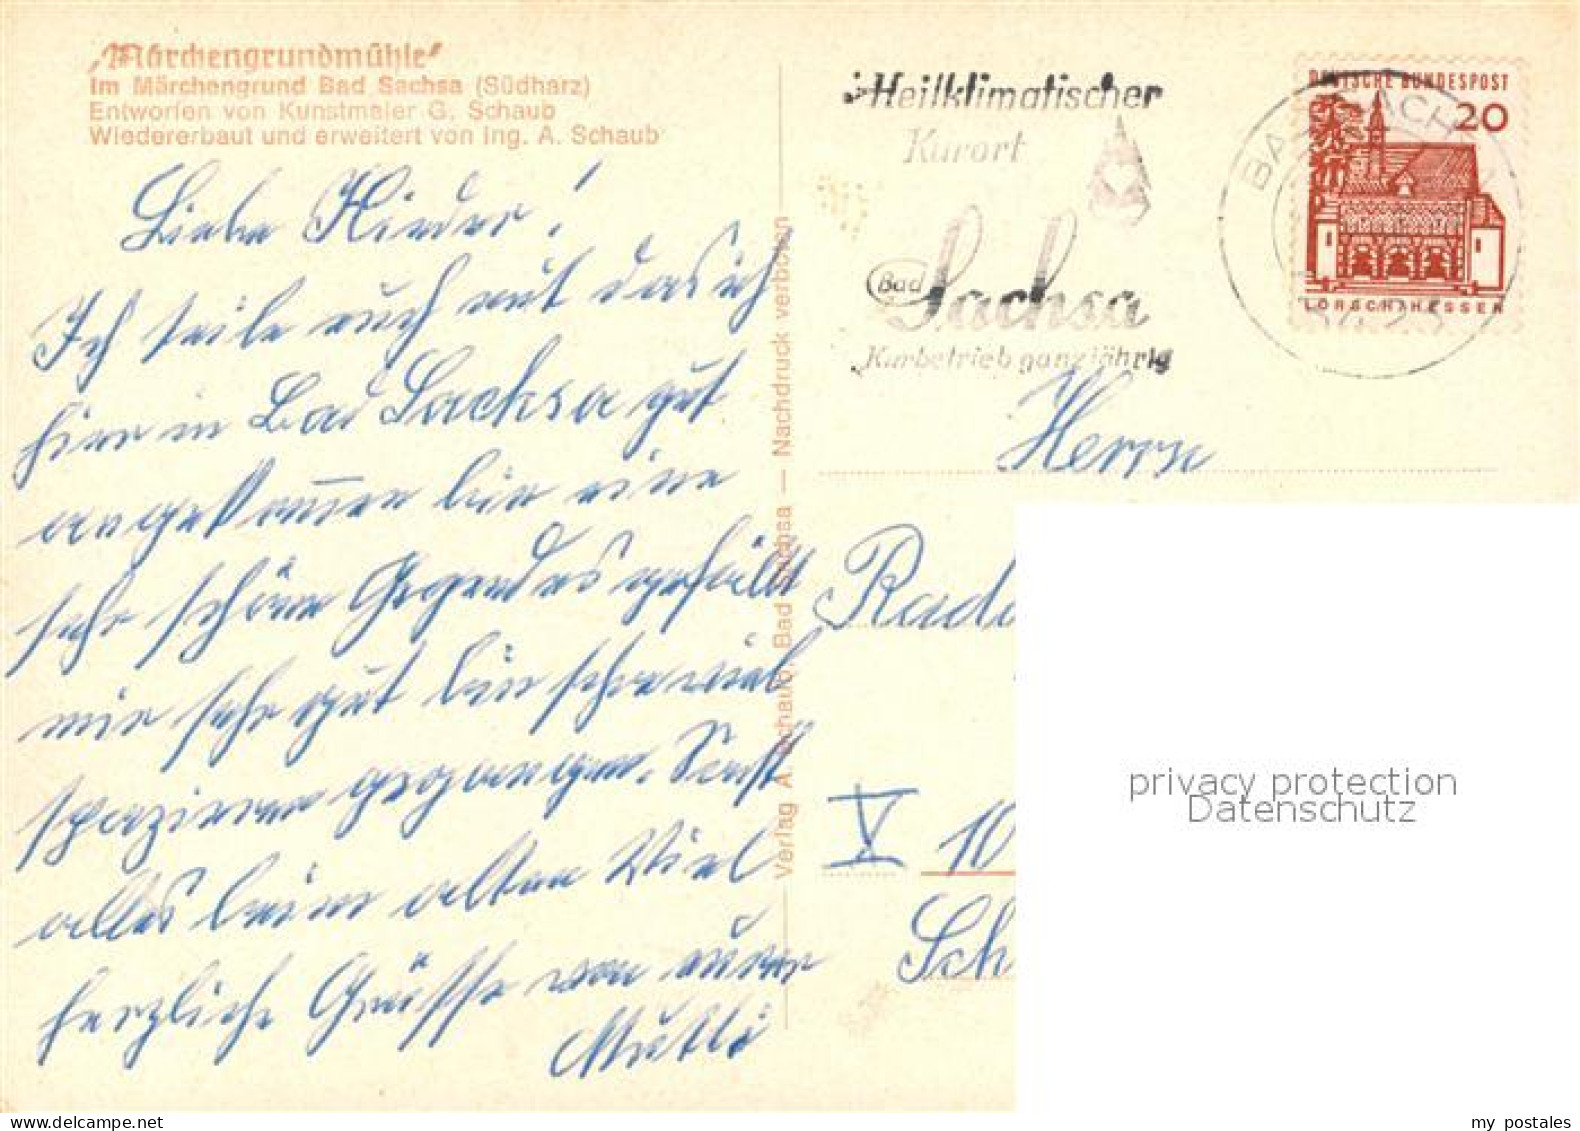 „Märchengrundmühle“
Im Märchengrund Bad Sachsa (Südharz)
Entworfen von Kunstmaler G. Schaub
Wiedererbaut und erweitert von Ing. A. Schaub
Liebe Kinder!
Ich teile euch mit das ich
hier in Bad Sachsa gut
angekommen bin eine
sehr schöne Gegend es gefällt
mir sehr gut bin schon viel
spazieren gegangen. Sonst
alles beim alten Viel
herzliche Grüsse von eurer
Mutti
Verlag A. Schaub, Bad Sachsa — Nachdruck verboten
Heilklimatischer
Kurort
Bad Sachsa
Kurbetrieb ganzjährig
DEUTSCHE BUNDESPOST
20
LORSCH/HESSEN
BAD SACHSA
Herrn
Rad
V 10
Sch
privacy protection
Datenschutz
my postales